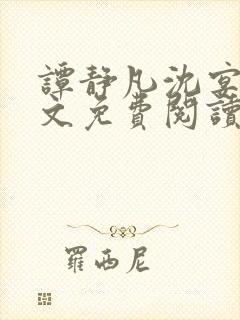 譚靜凡沈宴
文免費閱讀
羅西尼